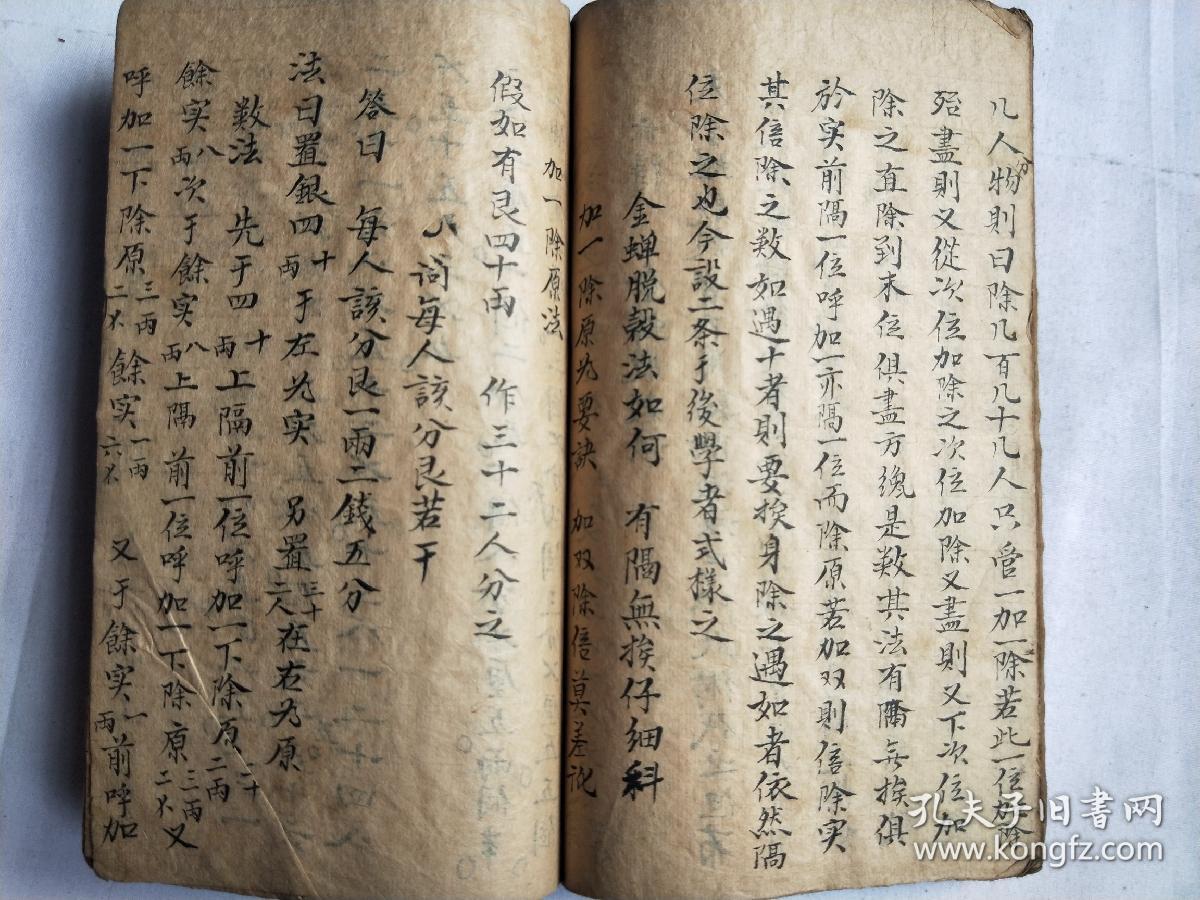 几人分物則曰除几百几十几人只管一加一除若此一位加除
殆盡則又從次位加除之次位加除又盡則又下次位加
除之直除到末位俱盡方纔是数其法有隔無挨俱
於实前隔一位呼加一亦隔一位而除原若加双則倍除实
其倍除之数如遇十者則要挨身除之遇如者依然隔
位除之也今設二条于後學者式樣之
金蝉脱殼法如何 有隔無挨仔細科
加一除原为要訣 加双除倍莫差訛
加一除原法
假如有艮四十两 作三十二人分之
問每人該分艮若干
答曰 每人該分艮一兩二錢五分
法曰置銀四十两于左为实 另置三十二人在右为原
数法 先于四十两上隔前一位呼加一下除原三十二两
餘实八两次于餘实八两上隔前一位呼加一下除原三两二钱又
呼加一下除原三两二钱餘实一两六钱 又于餘实一两前呼加
孔夫子旧书网
www.kongfz.com